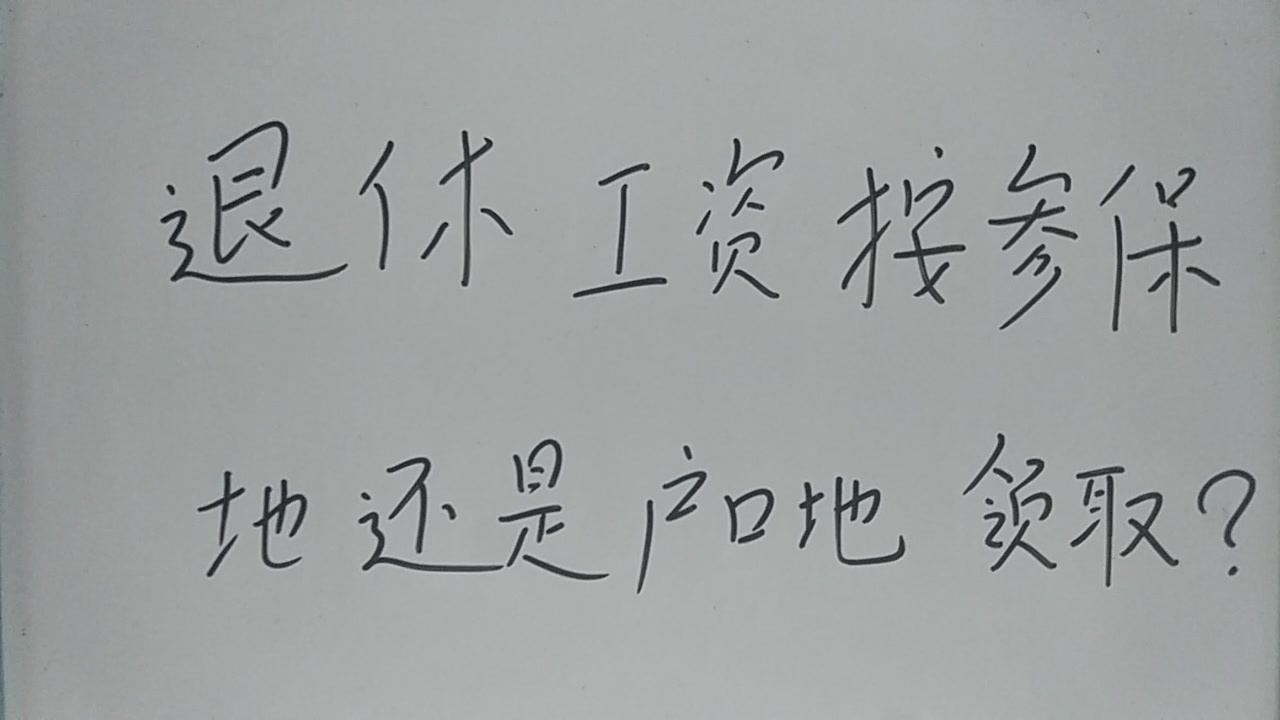 退休工资按参保
地还是户口地领取?